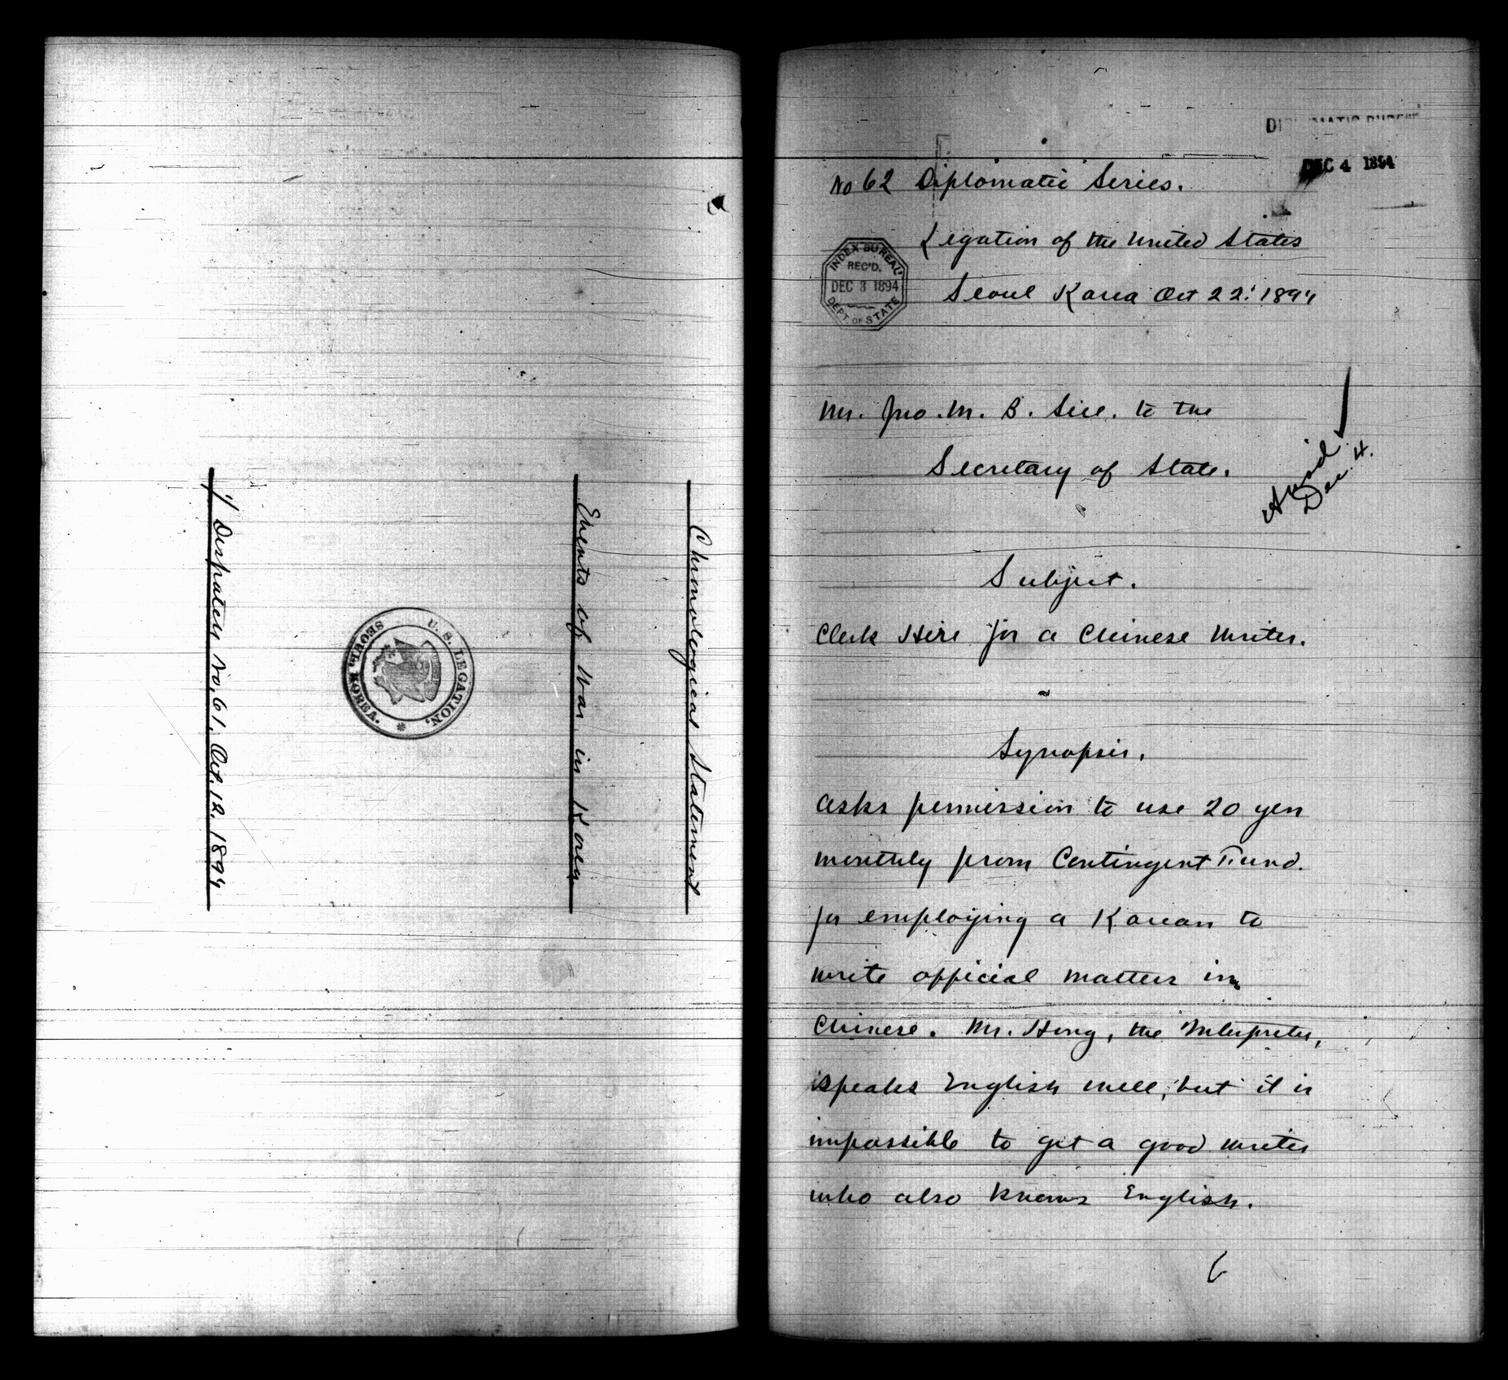 Chronological Statement
Events of War in Korea
U. S. LEGATION,
SEOUL, KOREA.
1/ Dispatch No. 61, Oct. 12, 1894
DEC 4 1894
No 62 Diplomatic Series.
Legation of the United States
Seoul Korea Oct 22' 1894
INDEX BUREAU
REC'D.
DEC 3 1894
DEPT. OF STATE
Mr. Jno. M. B. Sill. to the
Secretary of State.
Dec. 4.
Subject.
Clerk Hire for a Chinese Writer.
Synopsis.
Asks permission to use 20 yen
monthly from Contingent Fund.
for employing a Korean to
write official matters in
Chinese. Mr. Hong, the Interpreter,
speaks English well, but it is
impossible to get a good writer
who also knows English.